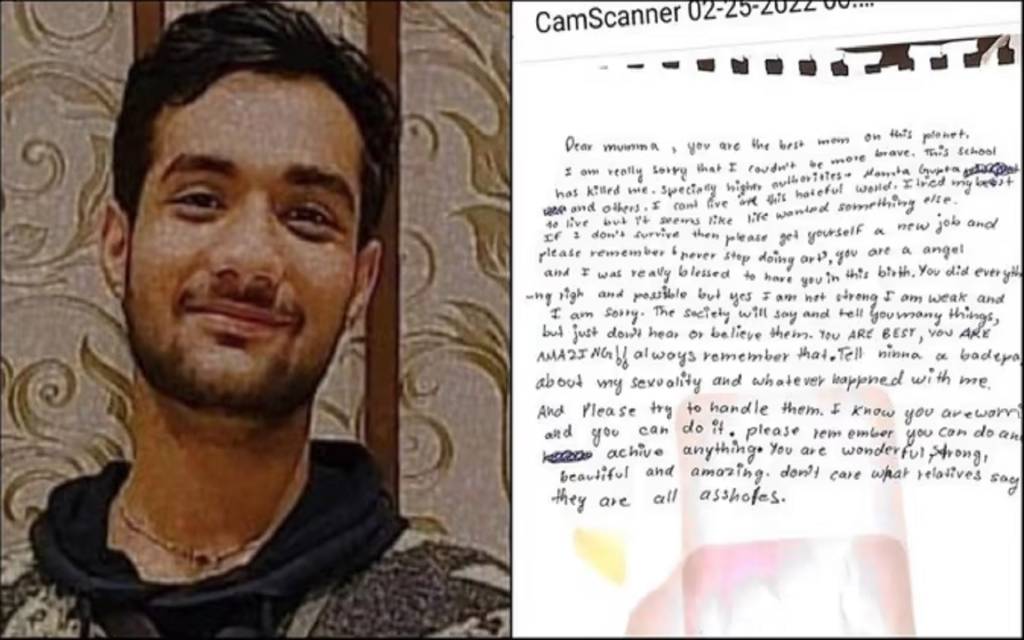 CamScanner 02-25-2022
Dear mumma, you are the best mom on this planet.
I am really sorry that I coudn't be more brave. This school
has killed me. Specially higher authorities - Mamta Gupta
and others. I cant live in this hateful world. I tried my best
to live but it seems like life wanted something else.
If I don't survive then please get yourself a new job and
please remember never stop doing art, you are a angel
and I was really blessed to have you in this birth. You did everyth
-ng righ and possible but yes I am not strong I am weak and
I am sorry. The society will say and tell you many things,
but just don't hear or believe them. You ARE BEST, YOU ARE
AMAZING!! always remember that. Tell ninna a badepa
about my sexuality and whatever happned with me.
And Please try to handle them. I know you are worri
and you can do it. please remember you can do an
achive anything. You are wonderful, strong,
beautiful and amazing. don't care what relatives say
they are all assholes.